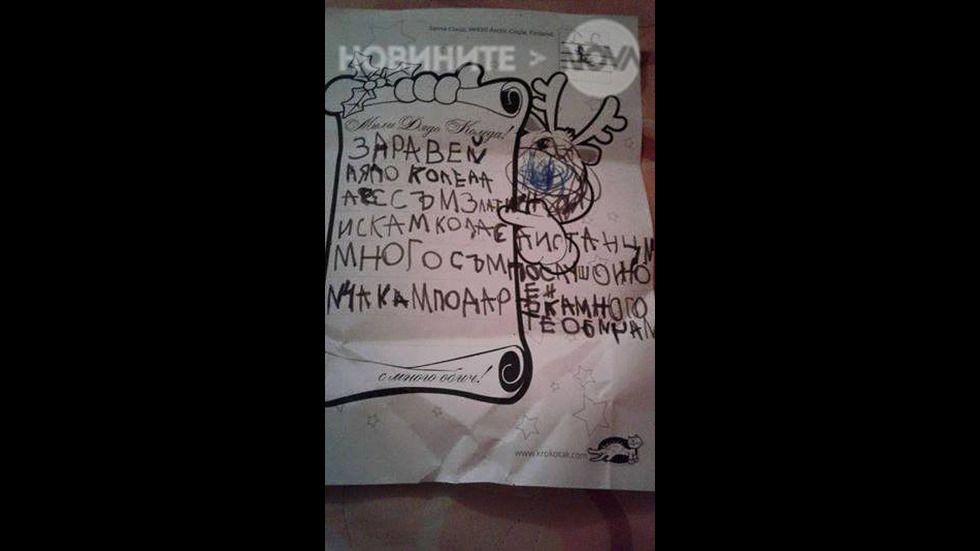 Santa Claus, 96930 Arctic Circle, Finland
НОВИНИТЕ > NOVA
Мили Дядо Коледа!
ЗАРАВЕЙ
ДЯДО КОЛЕДА
АЗ СЪМ ЗЛАТИН
ИСКАМ КОЛА С ДИСТАНЦ
МНОГО СЪМ ПОСЛУШОНО
И ЧАКАМ ПОДАРЕК
МНОГО
ТЕ ОБИЧАМ
с много обич!
www.krokotak.com